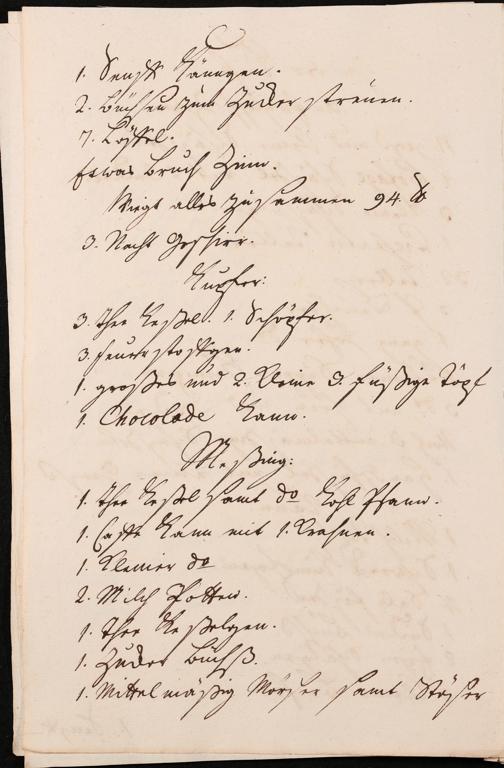 1. Senfft Känngen.
2. Büchsen zum Zucker streuen.
7. Löffel.
Etwas Bruch Zinn.
Wiegt alles zusammen 94. ℔
3. Nacht Geschirr.
Kupfer:
3. Thee Keßel. 1. Schöpfer.
3. feuer stoffgen.
1. großes und 2. Kleine 3. füßige Töpf
1. Chocolade Kann.
Meßing:
1. Thee Keßel samt do Kohl Pfann.
1. Caffe Kann mit 1. Krahnen.
1. Kleiner do
2. Milch Potten.
1. Thee Keßelgen.
1. Zucker Büchß.
1. Mittelmäßig Mörser samt Stößer